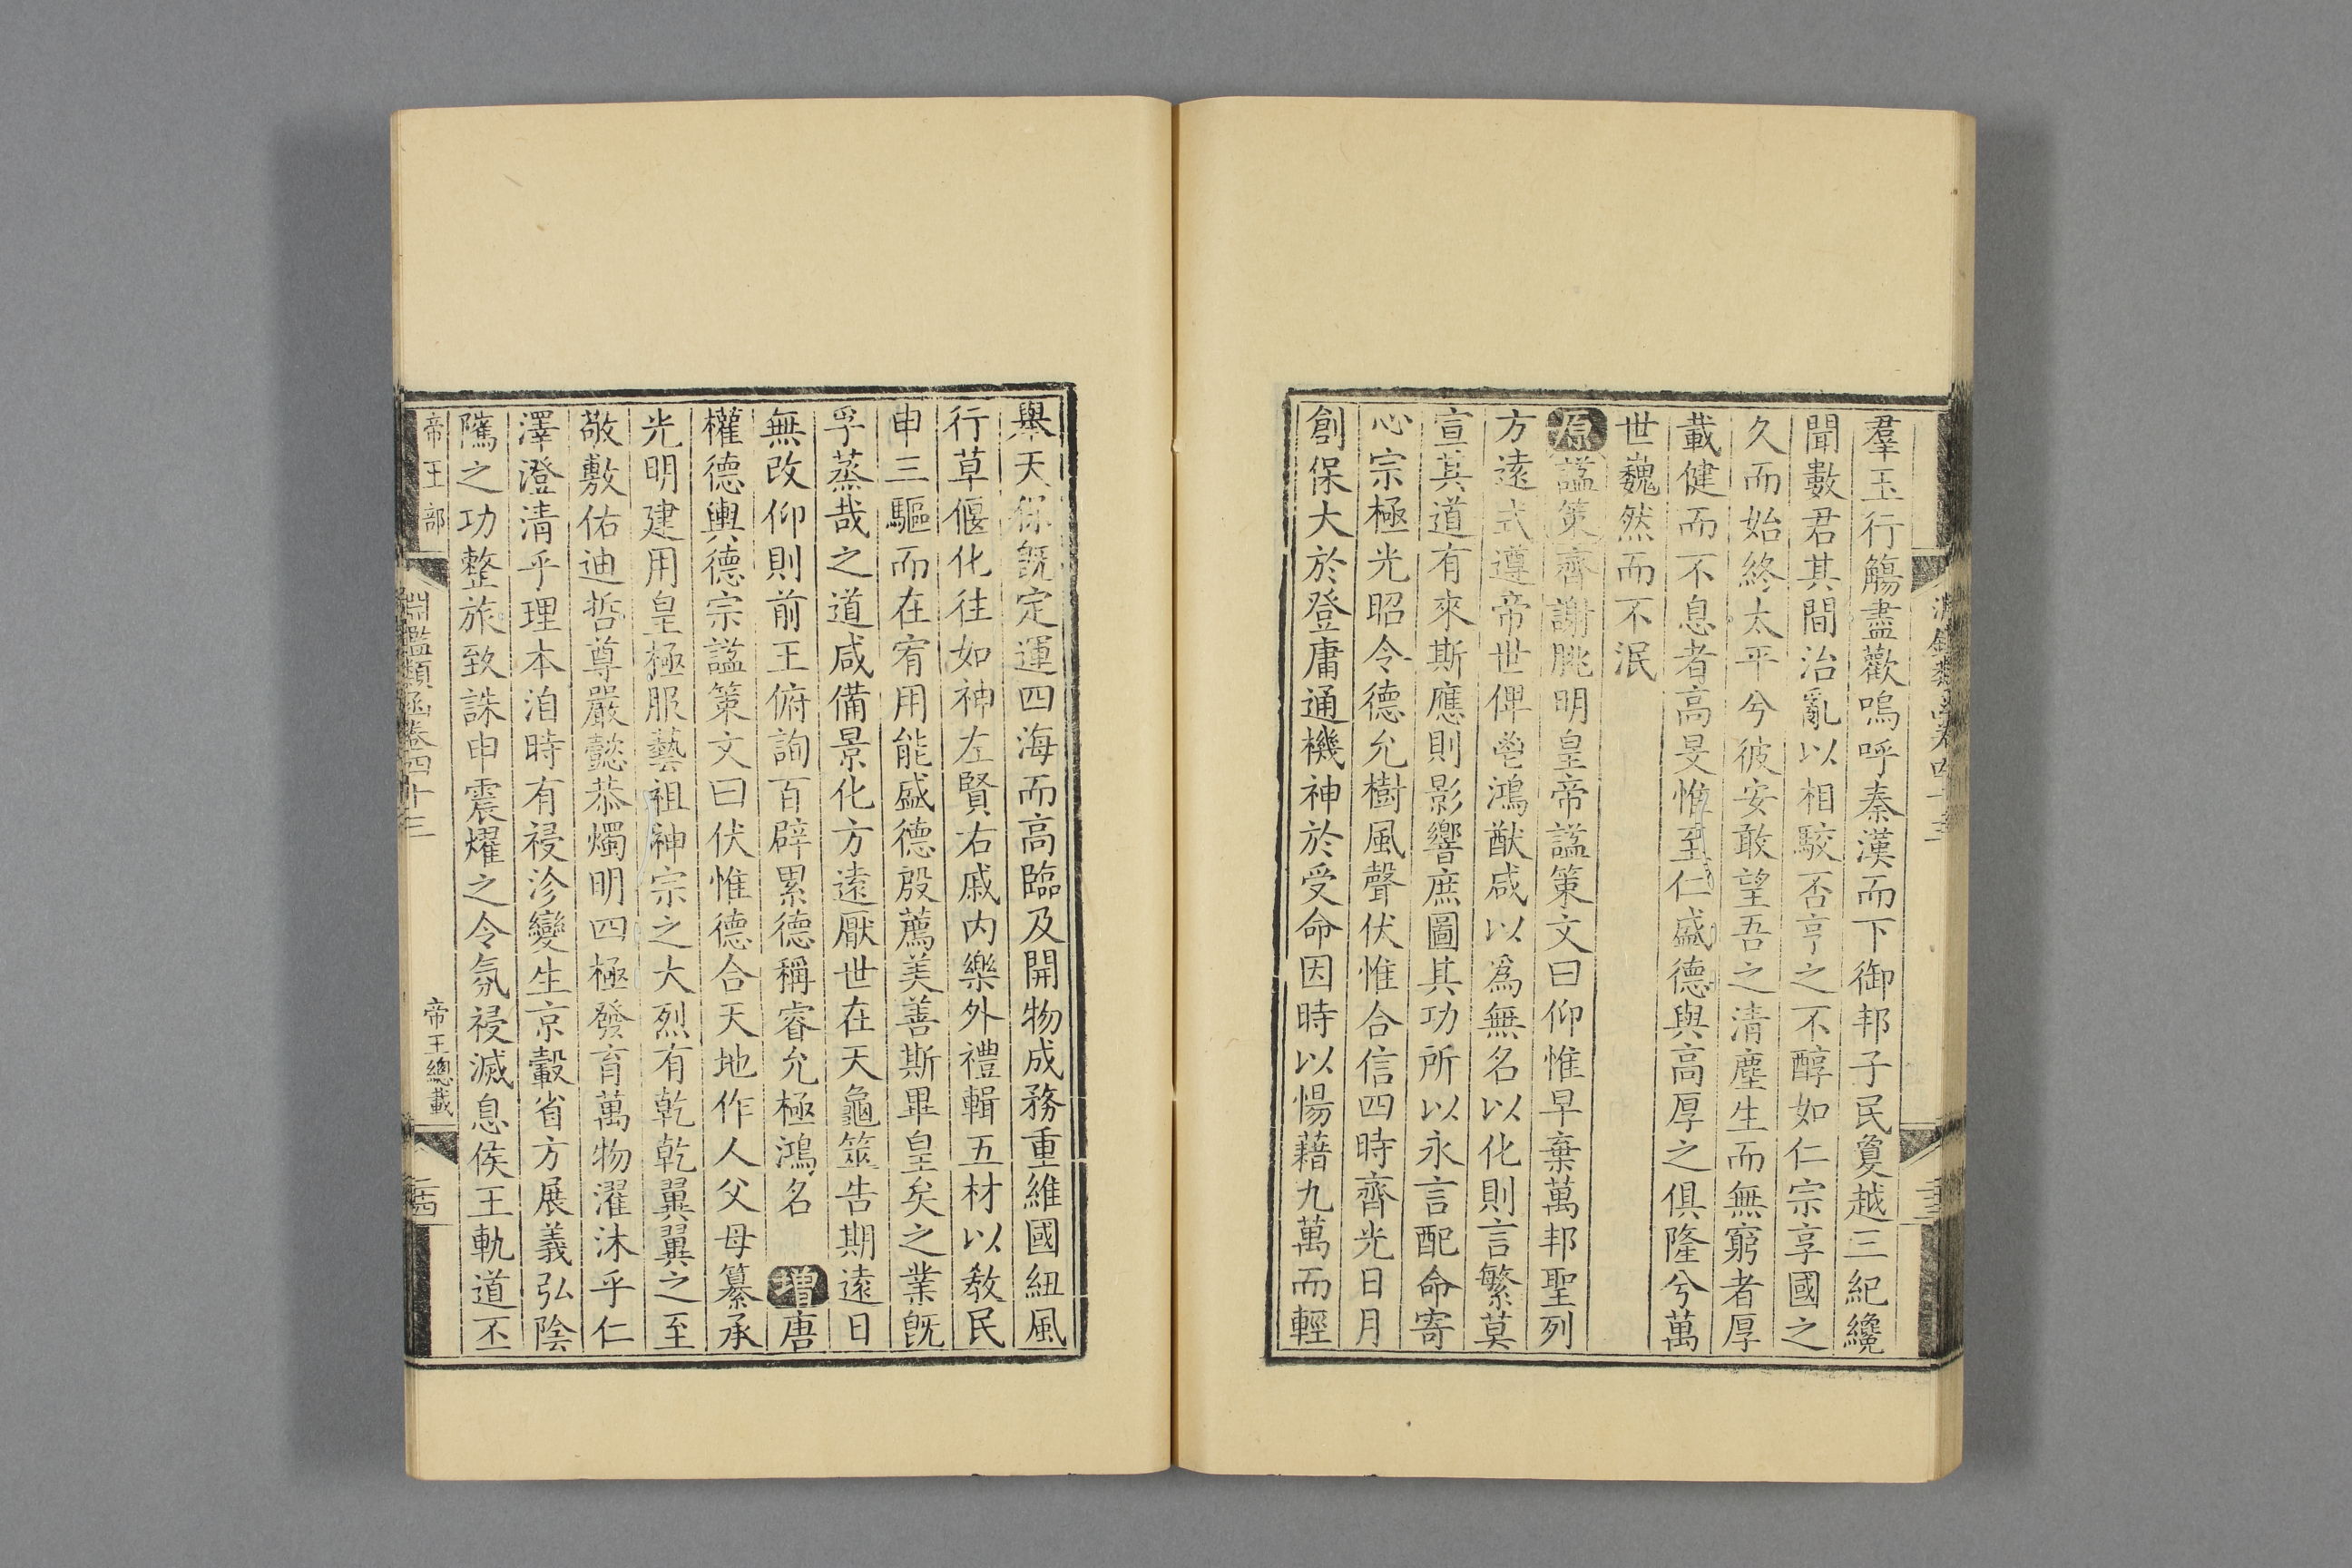 羣玉行觴盡歡嗚呼秦漢而下御邦子民敻越三紀纔
聞數君其間治亂以相駮否亨之不醇如仁宗享國之
久而始終太平兮彼安敢望吾之清塵生而無窮者厚
載健而不息者高旻惟至仁盛德與高厚之俱隆兮萬
世巍然而不泯
原謚策齊謝朓明皇帝謚策文曰仰惟早棄萬邦聖列
方遠式遵帝世俾鴻猷咸以爲無名以化則言繁莫
宣其道有來斯應則影響庶圖其功所以永言配命寄
心宗極光昭令德允樹風聲伏惟合信四時齊光日月
創保大於登庸通機神於受命因時以惕藉九萬而輕
舉天保旣定運四海而高臨及開物成務重維國紐風
行草偃化往如神左賢右戚内樂外禮輯五材以敎民
申三驅而在宥用能盛德殷薦美善斯畢皇矣之業旣
孚蒸哉之道咸備景化方遠厭世在天龜筮告期遠日
無改仰則前王俯詢百辟累德稱睿允極鴻名 增唐
權德輿德宗謚策文曰伏惟德合天地作人父母纂承
光明建用皇極服藝祖神宗之大烈有乾乾翼翼之至
敬敷佑迪哲尊嚴懿恭燭明四極發育萬物濯沐乎仁
澤澄清乎理本洎時有祲沴變生京轂省方展義弘陰
隲之功整旅致誅申震燿之令氛祲滅息侯王軌道丕
帝王部
淵鑑類函卷四十三
帝王總載
二十四